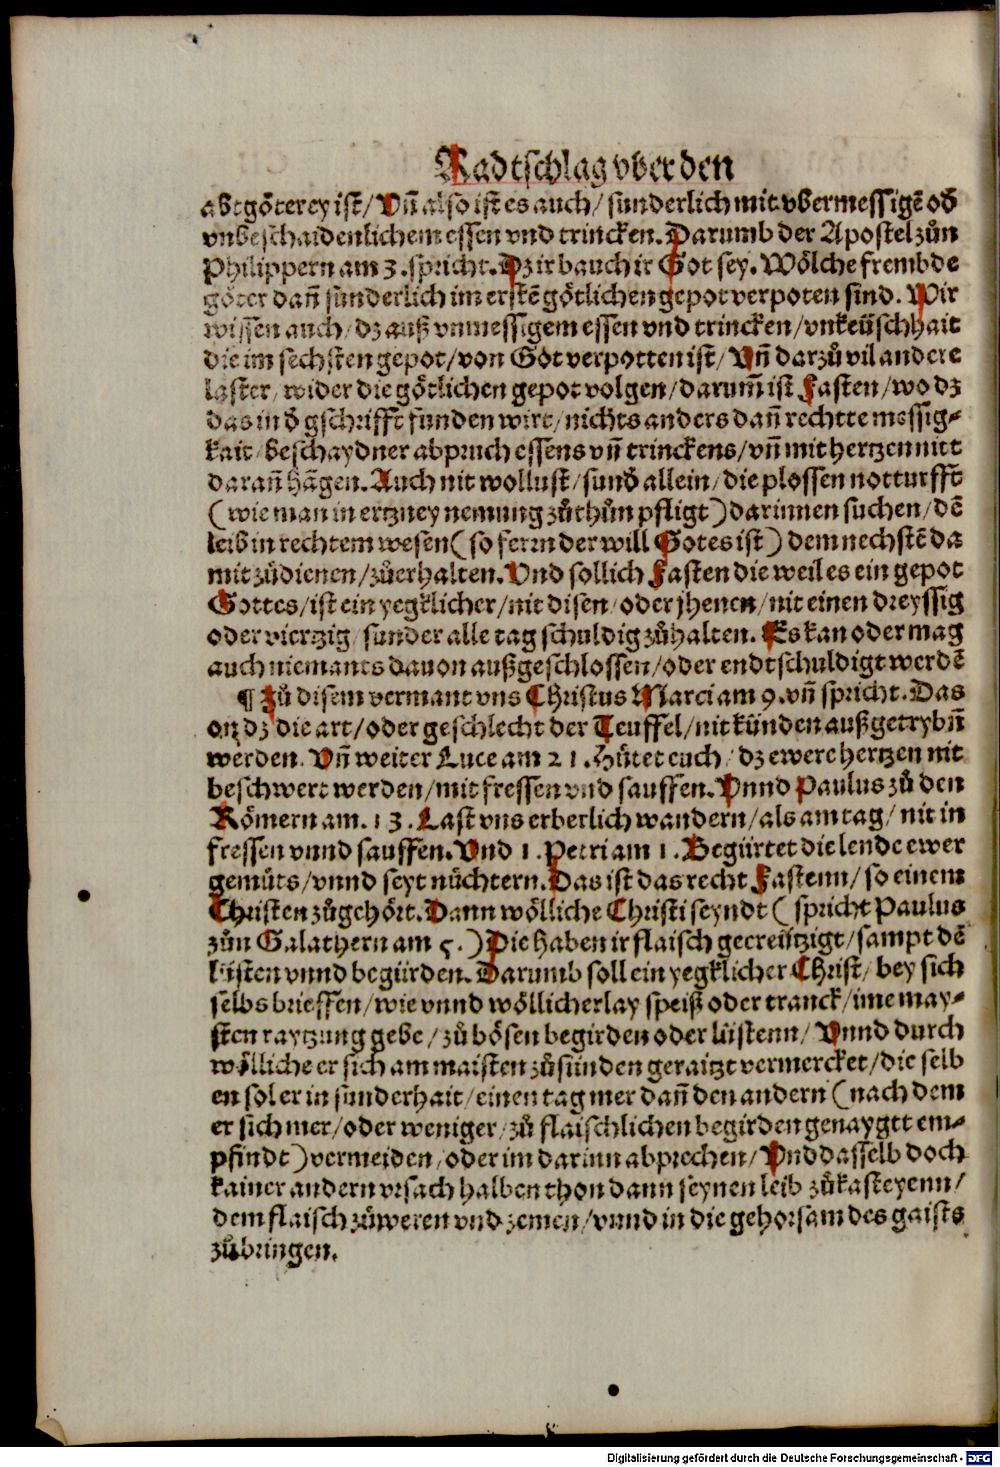 Radtschlag vber den
abtgöterey ist/ Vñ also ist es auch/ sunderlich mit vbermessigē oď
vnbeschaidenlichem essen vnd trincken. Darumb der Apostel zůn
Philippern am 3. spricht. Dz ir bauch ir Got sey. Wölche frembde
göter dañ sunderlich im erstē götlichen gepot verpoten sind. Wir
wissen auch/ dz auß vnmessigem essen vnd trincken/ vnkeüschhait
die im sechsten gepot/ von Got verpotten ist/ Vñ darzů vil andere
laster/ wider die götlichen gepot volgen/ darum̃ ist Fasten/ wo dz
das in ď gschrifft funden wirt/ nichts anders dañ rechtte messig-
kait/ beschaydner abpruch essens vñ trinckens/ vñ mit hertzen nitt
darañ hãgen. Auch nit wollust/ sunď allein/ die plossen notturfft
(wie man in ertzney nemung zůthůn pfligt) darinnen suchen/ dē
leib in rechtem wesen (so ferrn der will Gotes ist) dem nechstē da
mit zůdienen/ zůerhalten. Vnd sollich Fasten die weil es ein gepot
Gottes/ ist ein yegklicher/ nit disen/ oder jhenen/ nit einen dreyssig
oder viertzig/ sunder alle tag schuldig zůhalten. Es kan oder mag
auch niemants dauon außgeschlossen/ oder endtschuldigt werdē
¶ Zů disem vermant vns Christus Marci am 9. vñ spricht. Das
on dz die art/ oder geschlecht der Teuffel/ nit künden außgetrybñ
werden. Vñ weiter Luce am 21. Hütet euch/ dz ewere hertzen nit
beschwert werden/ mit fressen vnd sauffen. Vnnd Paulus zů den
Römern am. 13. Last vns erberlich wandern/ als am tag/ nit in
fressen vnnd sauffen. Vnd 1. Petri am 1. Begürtet die lende ewer
gemüts/ vnnd seyt nüchtern. Das ist das recht Fastenn/ so einem
Christen zůgehört. Dann wölliche Christi seyndt (spricht Paulus
zůn Galathern am 5.) Die haben ir flaisch gecreützigt/ sampt dē
lüsten vnnd begürden. Darumb soll ein yegklicher Christ/ bey sich
selbs brieffen/ wie vnnd wöllicherlay speiß oder tranck/ ime may-
sten raytzung gebe/ zů bösen begirden oder lüstenn/ Vnnd durch
wölliche er sich am maisten zůsünden geraitzt vermercket/ die selb
en sol er in sunderhait/ einen tag mer dañ den andern (nach dem
er sich mer/ oder weniger/ zů flaischlichen begirden genaygtt em-
pfindt) vermeiden/ oder im darinn abprechen/ Vnd dasselb doch
kainer andern vrsach halben thon dann seynen leib zůkasteyenn/
dem flaisch zůweren vnd zemen/ vnnd in die gehorsam des gaists
zůbringen.
Digitalisierung gefördert durch die Deutsche Forschungsgemeinschaft - DFG